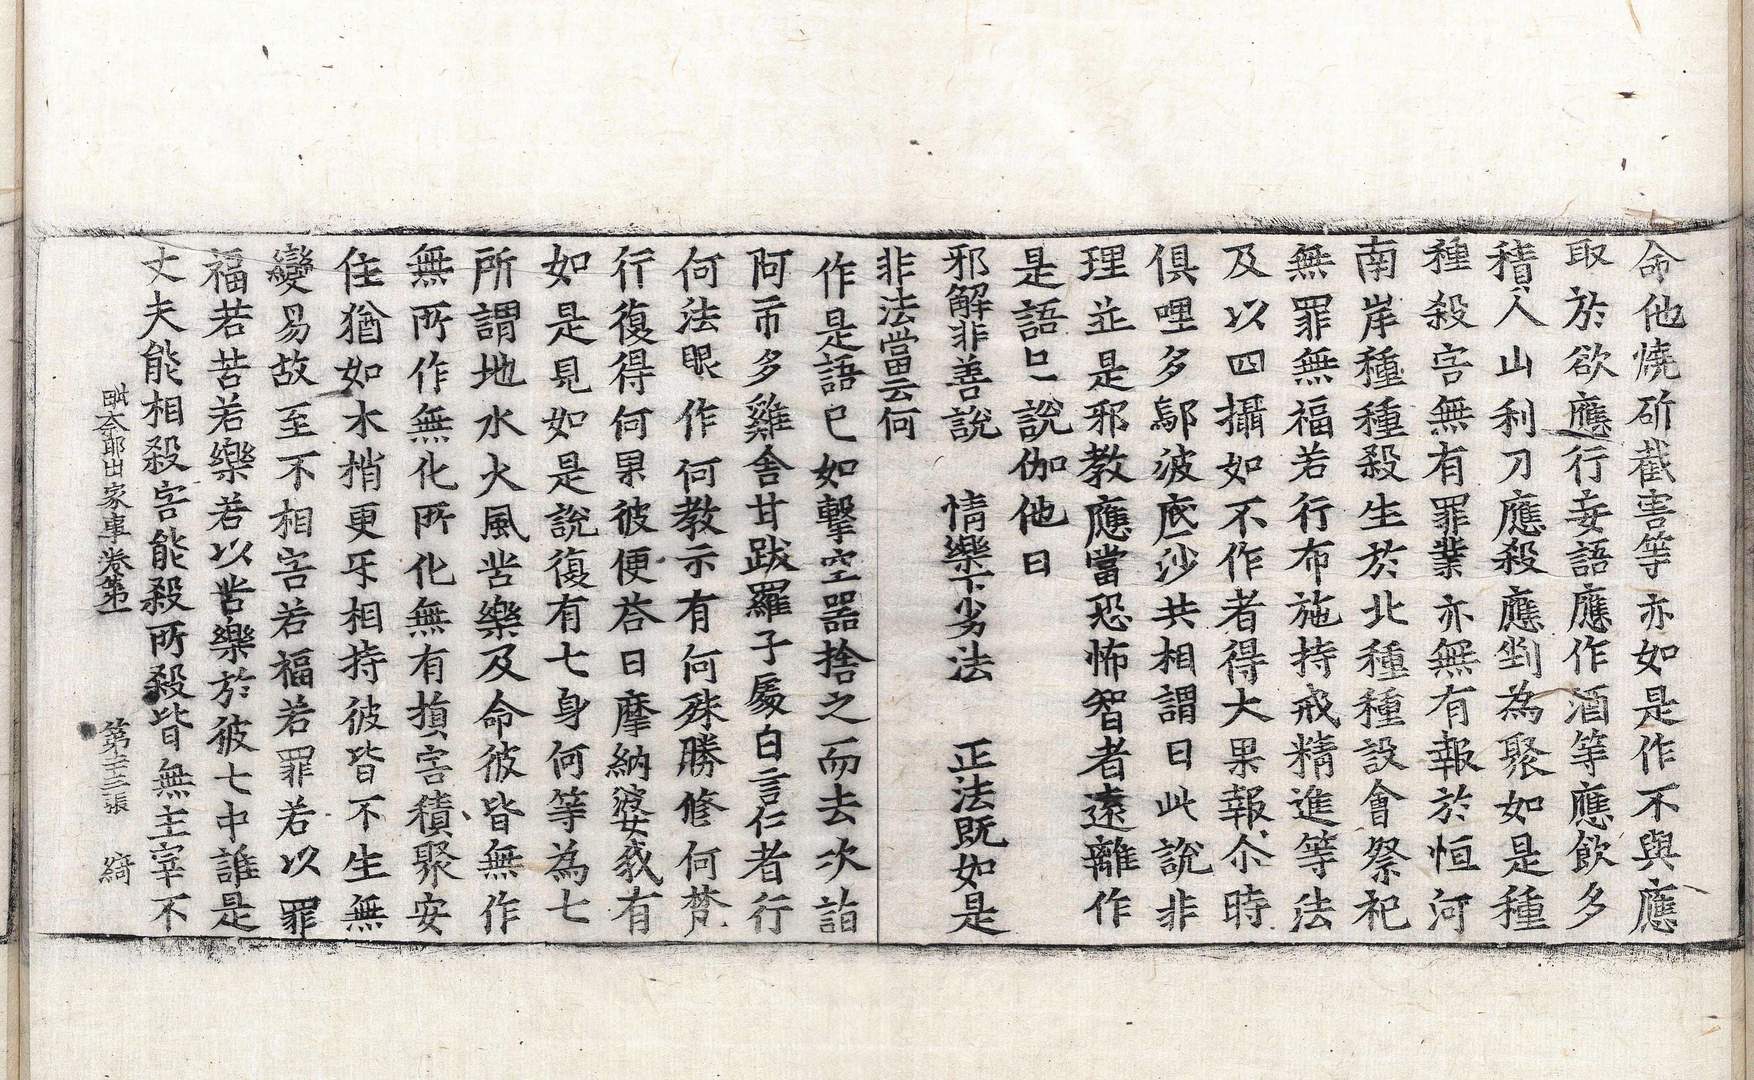 命他燒斫截害等亦如是作不與應
取於欲應行妄語應作酒等應飲多
積人山利刀應殺應㓟為聚如是種
種殺害無有罪業亦無有報於恒河
南岸種種殺生於北種種設會祭祀
無罪無福若行布施持戒精進等法
及以四攝如不作者得大果報尒時
俱哩多鄔波底沙共相謂曰此說非
理並是邪教應當恐怖智者遠離作
是語已說伽他曰
邪解非善說　情樂下劣法　正法既如是
非法當云何
作是語已如擊空器捨之而去次詣
阿帀多雞舍甘跋羅子處白言仁者行
何法眼作何教示有何殊勝修何梵
行復得何果彼便荅曰摩納婆我有
如是見如是說復有七身何等為七
所謂地水火風苦樂及命彼皆無作
無所作無化所化無有損害積聚安
住猶如木梢更牙相持彼皆不生無
變易故至不相害若福若罪若以罪
福若苦若樂若以苦樂於彼七中誰是
丈夫能相殺害能殺所殺皆無主宰不
毗奈耶出家事卷第一　第十三張　綺